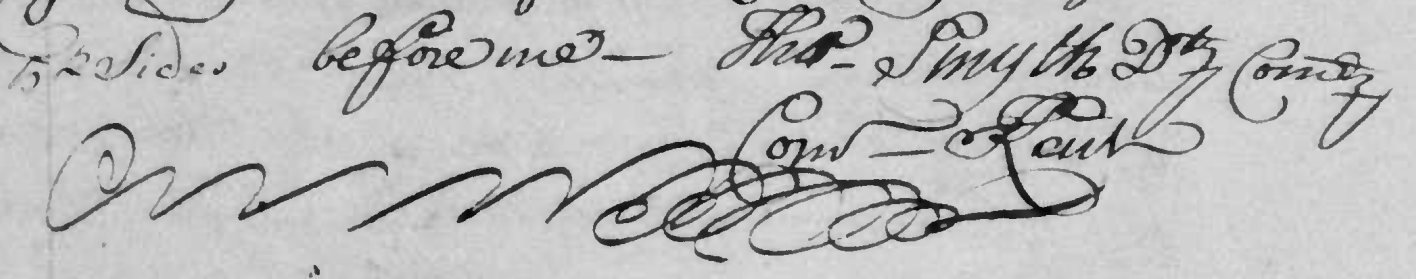 Sides before me — Tho:s Smyth Dty Comry
Com — Kent